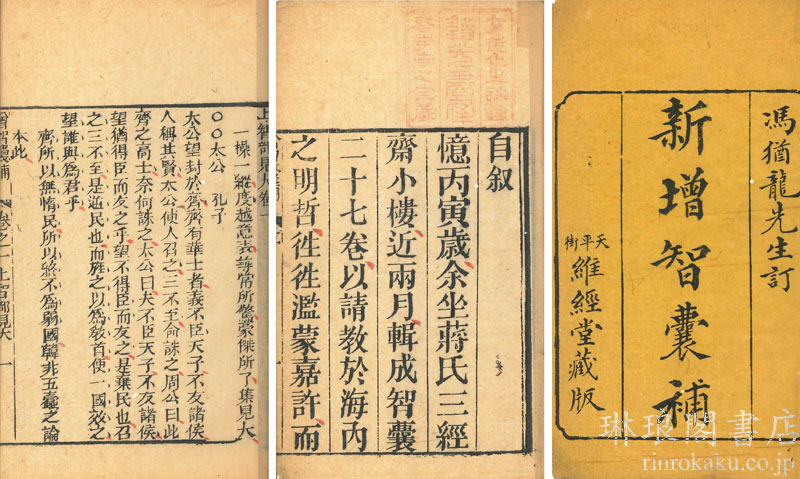 馮猶龍先生訂
新增智囊補
天平街
維經堂藏版
自叙
憶丙寅歲余坐蔣氏三經
齋小樓近兩月輯成智囊
二十七卷以請教於海內
之明哲徃徃濫蒙嘉許而
上智部見大卷一
一操一縱度越意表尋常所驚豪傑所了集見大
〇〇太公 孔子
太公望封於齊齊有華士者義不臣天子不友諸侯
人稱其賢太公使人召之三不至命誅之周公曰此
齊之高士奈何誅之太公曰夫不臣天子不友諸侯
望猶得臣而友之乎望不得臣而友之是棄民也召
之三不至是逆民也而旌之以爲教首使一國效之
望誰與爲君乎
齊所以無惰民所以終不爲弱國韓非五蠹之論
本此
卷之一上智部見大 一
琳琅閣書店
rinrokaku.co.jp